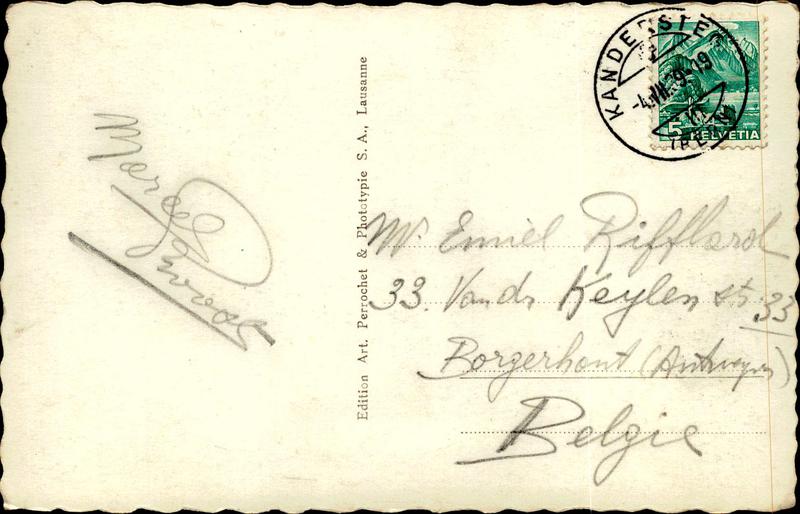 Marcel
Edition Art. Perrochet & Phototypie S. A., Lausanne
KANDERSTEG
-4.VII.39.-19
5 HELVETIA
Mr Emiel Rifflard
33. Vand. Keylen str. 33
Borgerhout (Antwerpen)
Belgie